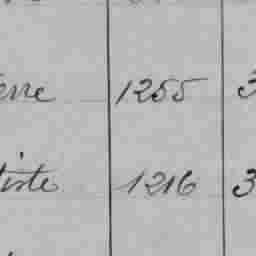 erre 1255 3
tiste 1216 3